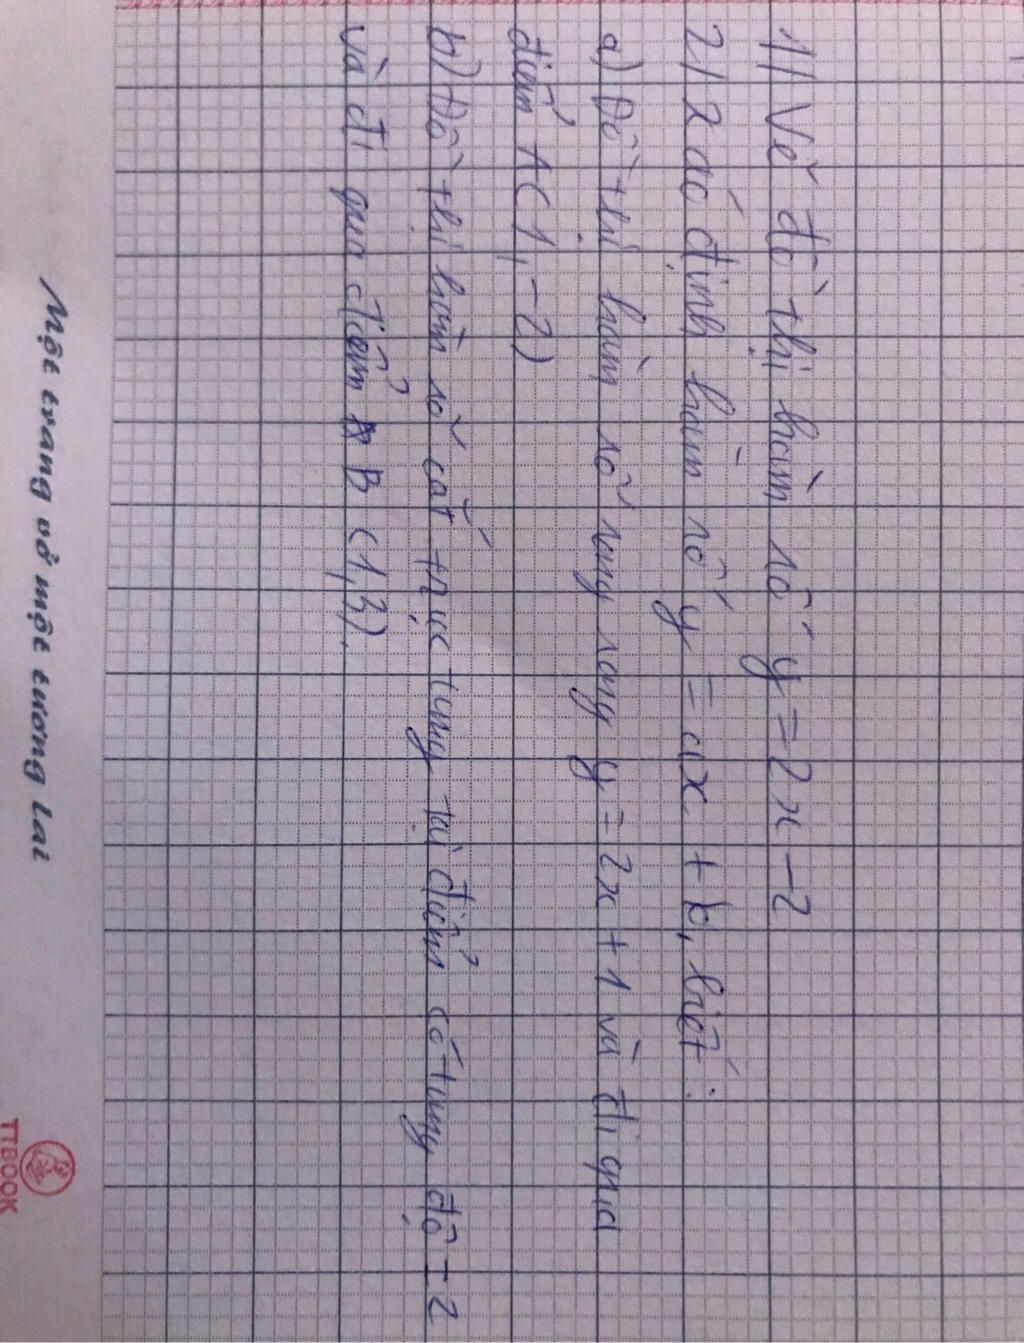 1// Vẽ đồ thị hàm số y = 2x - 2
2/ Xác định hàm số y = ax + b, biết :
a) Đồ thị hàm số song song y = 2x + 1 và đi qua
điểm A(1, -2)
b) Đồ thị hàm số cắt trục tung tại điểm có tung độ - 2
và đi qua điểm B (1,3).
Một trang vở một tương lai
TTBOOK